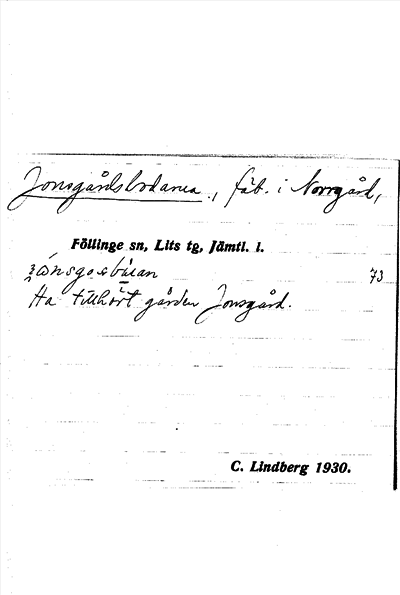 Jonsgårdsbodarna, fäb. i Norrgård,
Föllinge sn, Lits tg, Jämtl. l.
73
Ha tillhört gården Jonsgård.
C. Lindberg 1930.